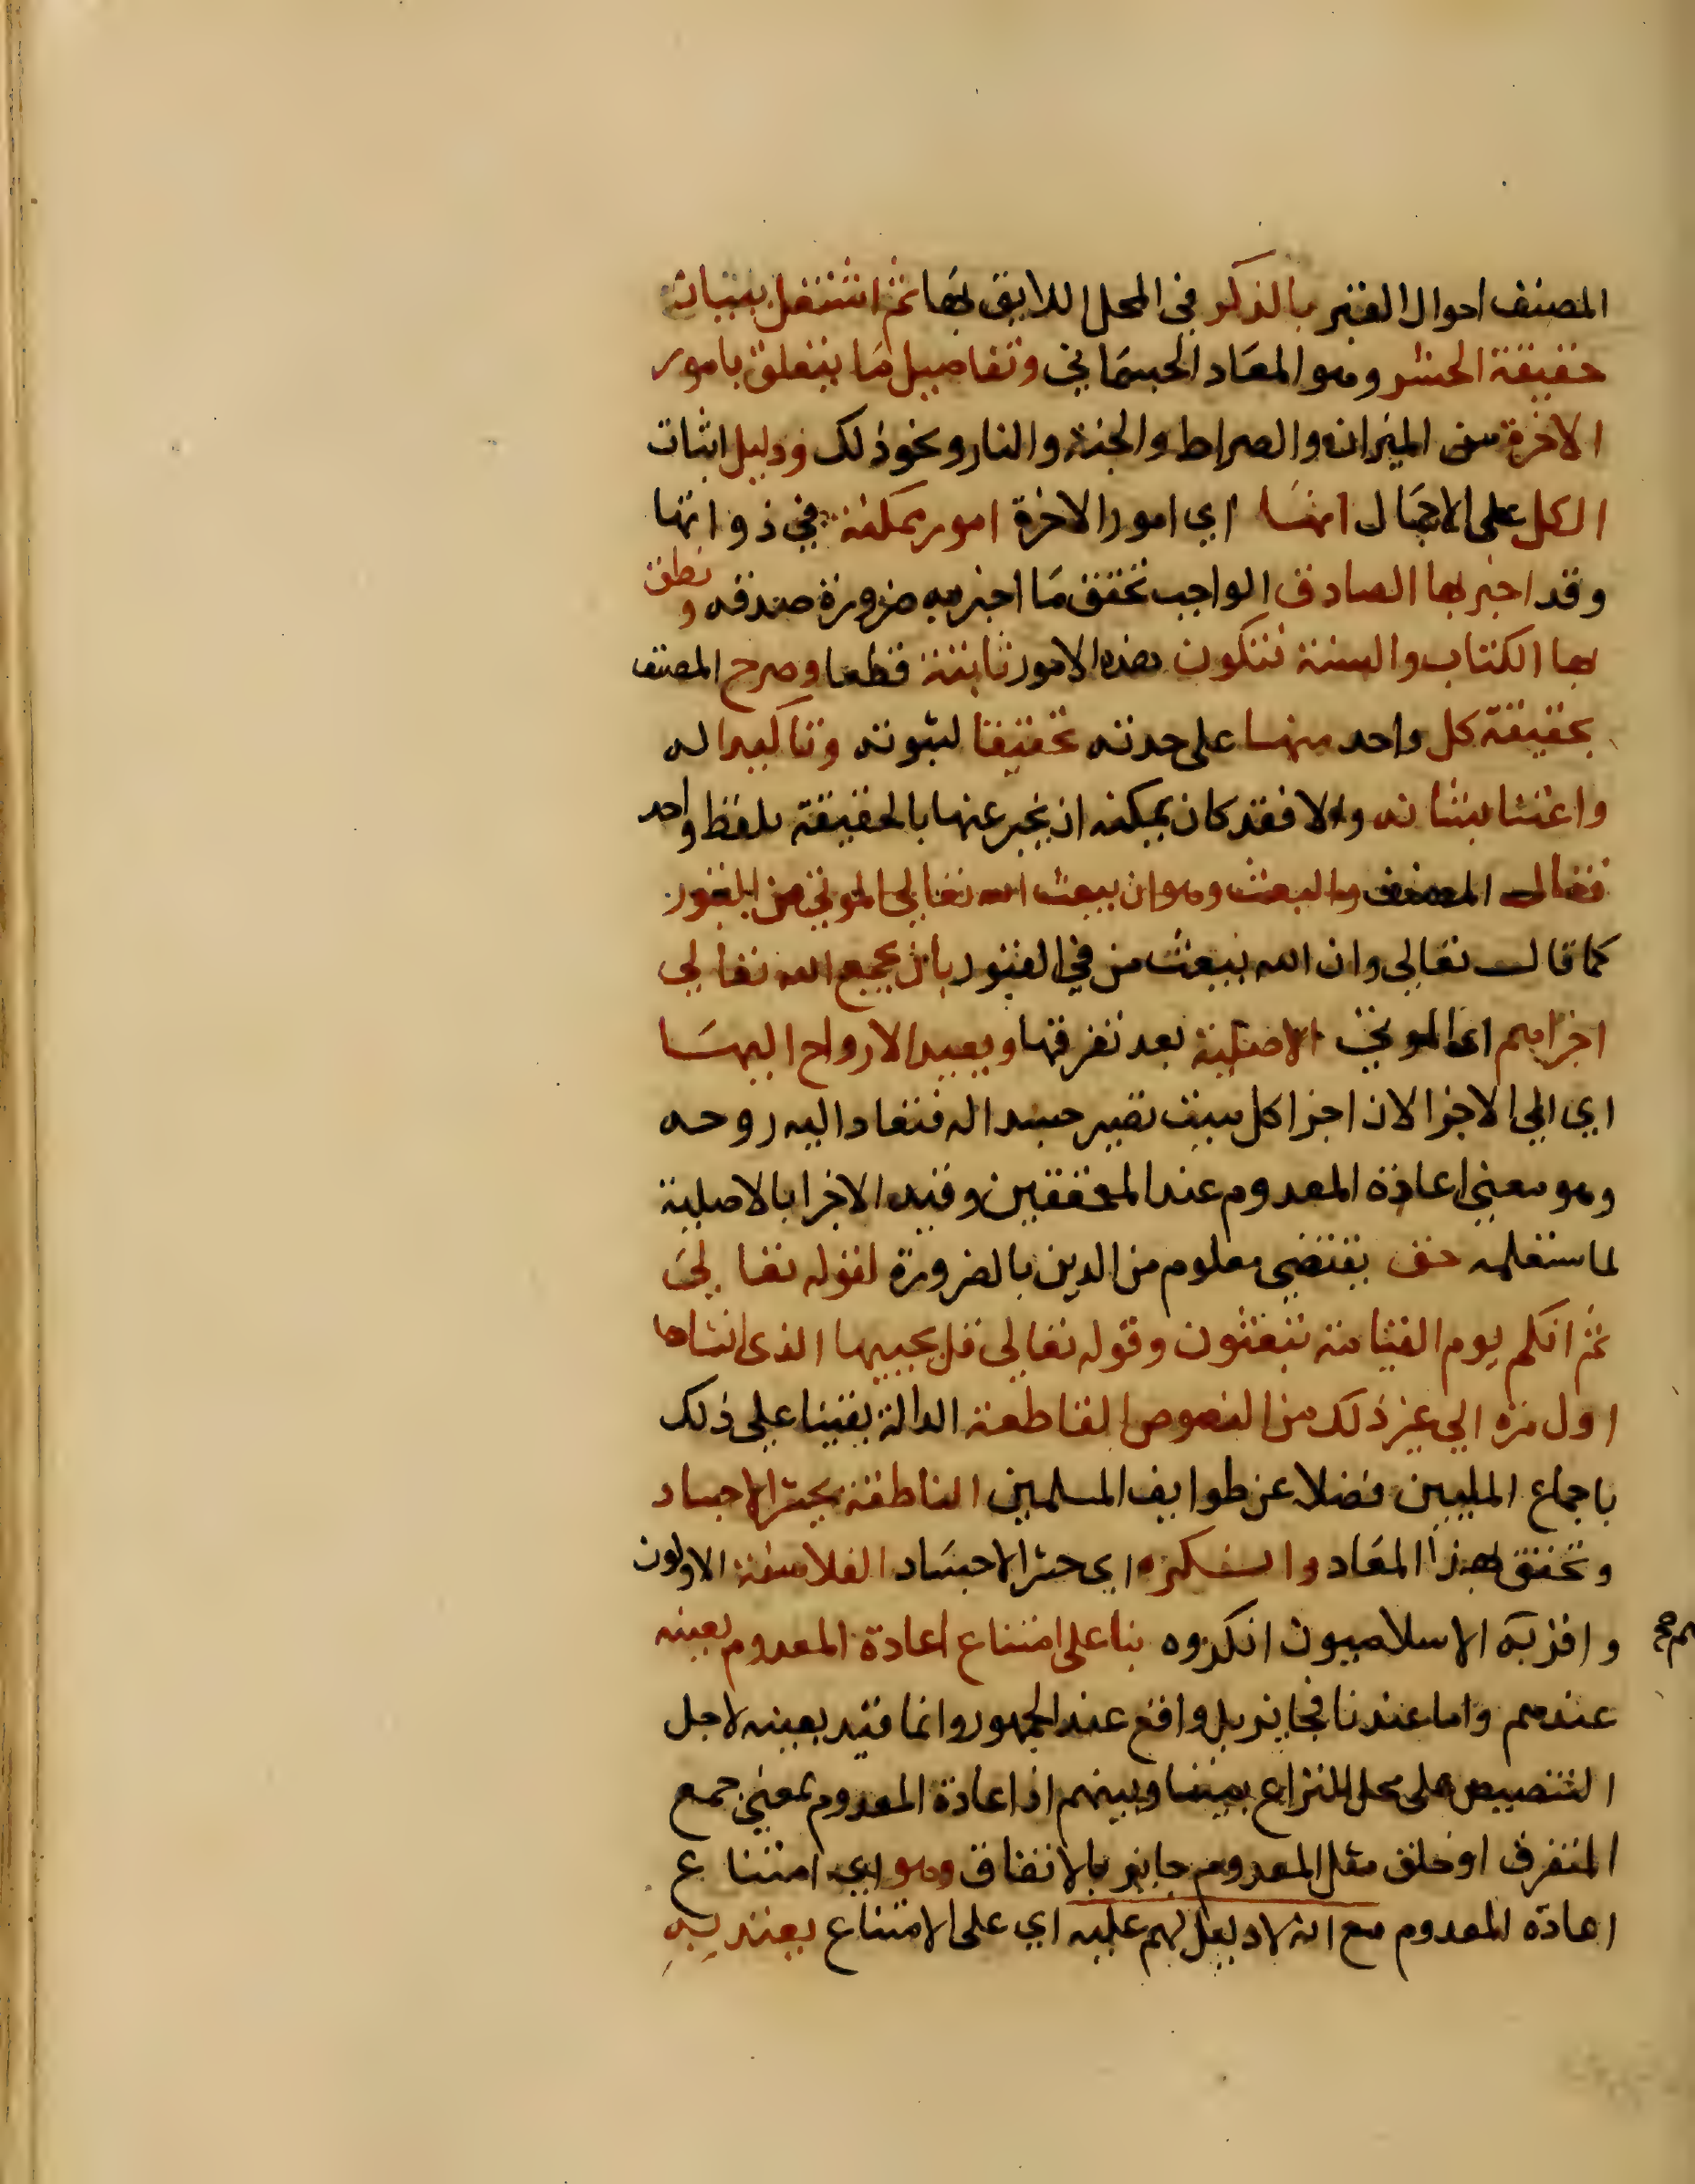 المصنف احوال القبر بالذكر في المحل اللايق بها ثم اشتغل ببيان
حقيقة الحشر وهو المعاد الجسماني وتفاصيل ما يتعلق بامور
الاخرة من الميزان والصراط والجنة والنار ونحو ذلك ودليل اثبات
الكل على الاجمال انها اي امور الاخرة امور ممكنة في ذواتها
وقد اخبر بها الصادق الواجب تحقق ما اخبر به ضرورة صدقه ونطق
بها الكتاب والسنة فتكون هذه الامور ثابتة قطعا وصرح المصنف
بحقيقة كل واحد منها على حدته تحقيقا لثبوته وتاكيدا له
واعتنا بشانه والا فقد كان يمكنه ان يخبر عنها بالحقيقة بلفظ واحد
فقال المصنف والبعث وهو ان يبعث الله تعالى الموتى من القبور
كما قال تعالى وان الله يبعث من في القبور بان يجمع الله تعالى
اجزاهم اي الموتى الاصلية بعد تفرقها ويعيد الارواح اليها
اي الى الاجزا لان اجزا كل ميت تصير جسدا له فتعاد اليه روحه
وهو معنى اعادة المعدوم عند المحققين وقيد الاجزا بالاصلية
لما ستعلمه حق بقتضى معلوم من الدين بالضرورة لقوله تعالى
ثم انكم يوم القيامة تبعثون وقوله تعالى قل يحييها الذى انشاها
اول مرة الى غير ذلك من النصوص القاطعة الدالة يقينا على ذلك
باجماع المليين فضلا عن طوايف المسلمين الناطقة بحشر الاجساد
وتحقق بهذا المعاد وانكره اي حشر الاجساد الفلاسفة الاولون
واقربة الاسلاميون انكروه بنا على امتناع اعادة المعدوم بعينه
عندهم واما عندنا فجايز بل واقع عند الجمهور وانما قيد بعينه لاجل
التنصيص على محل النزاع بيننا وبينهم اذ اعادة المعدوم بمعنى جمع
المتفرق او خلق مثل المعدوم جايز بالاتفاق وهو اي امتناع
اعادة المعدوم مع انه لا دليل لهم عليه اي على الامتناع يعتد به